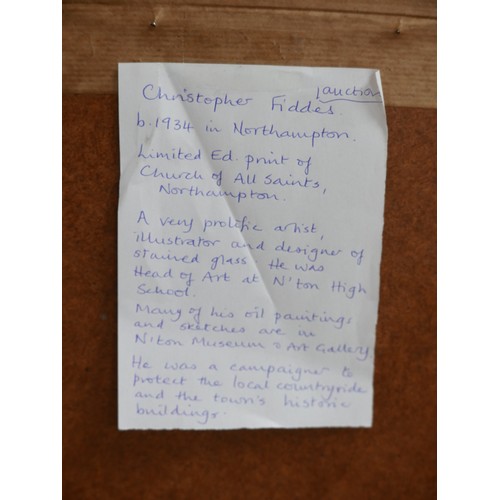 auction
Christopher Fiddes.
b. 1934 in Northampton.
Limited Ed. print of
Church of All Saints,
Northampton.
A very prolific artist,
illustrator and designer of
stained glass. He was
Head of Art at N'ton High
School.
Many of his oil paintings
and sketches are in
N'ton Museum & Art Gallery
He was a campaigner to
protect the local countryside
and the town's historic
buildings.